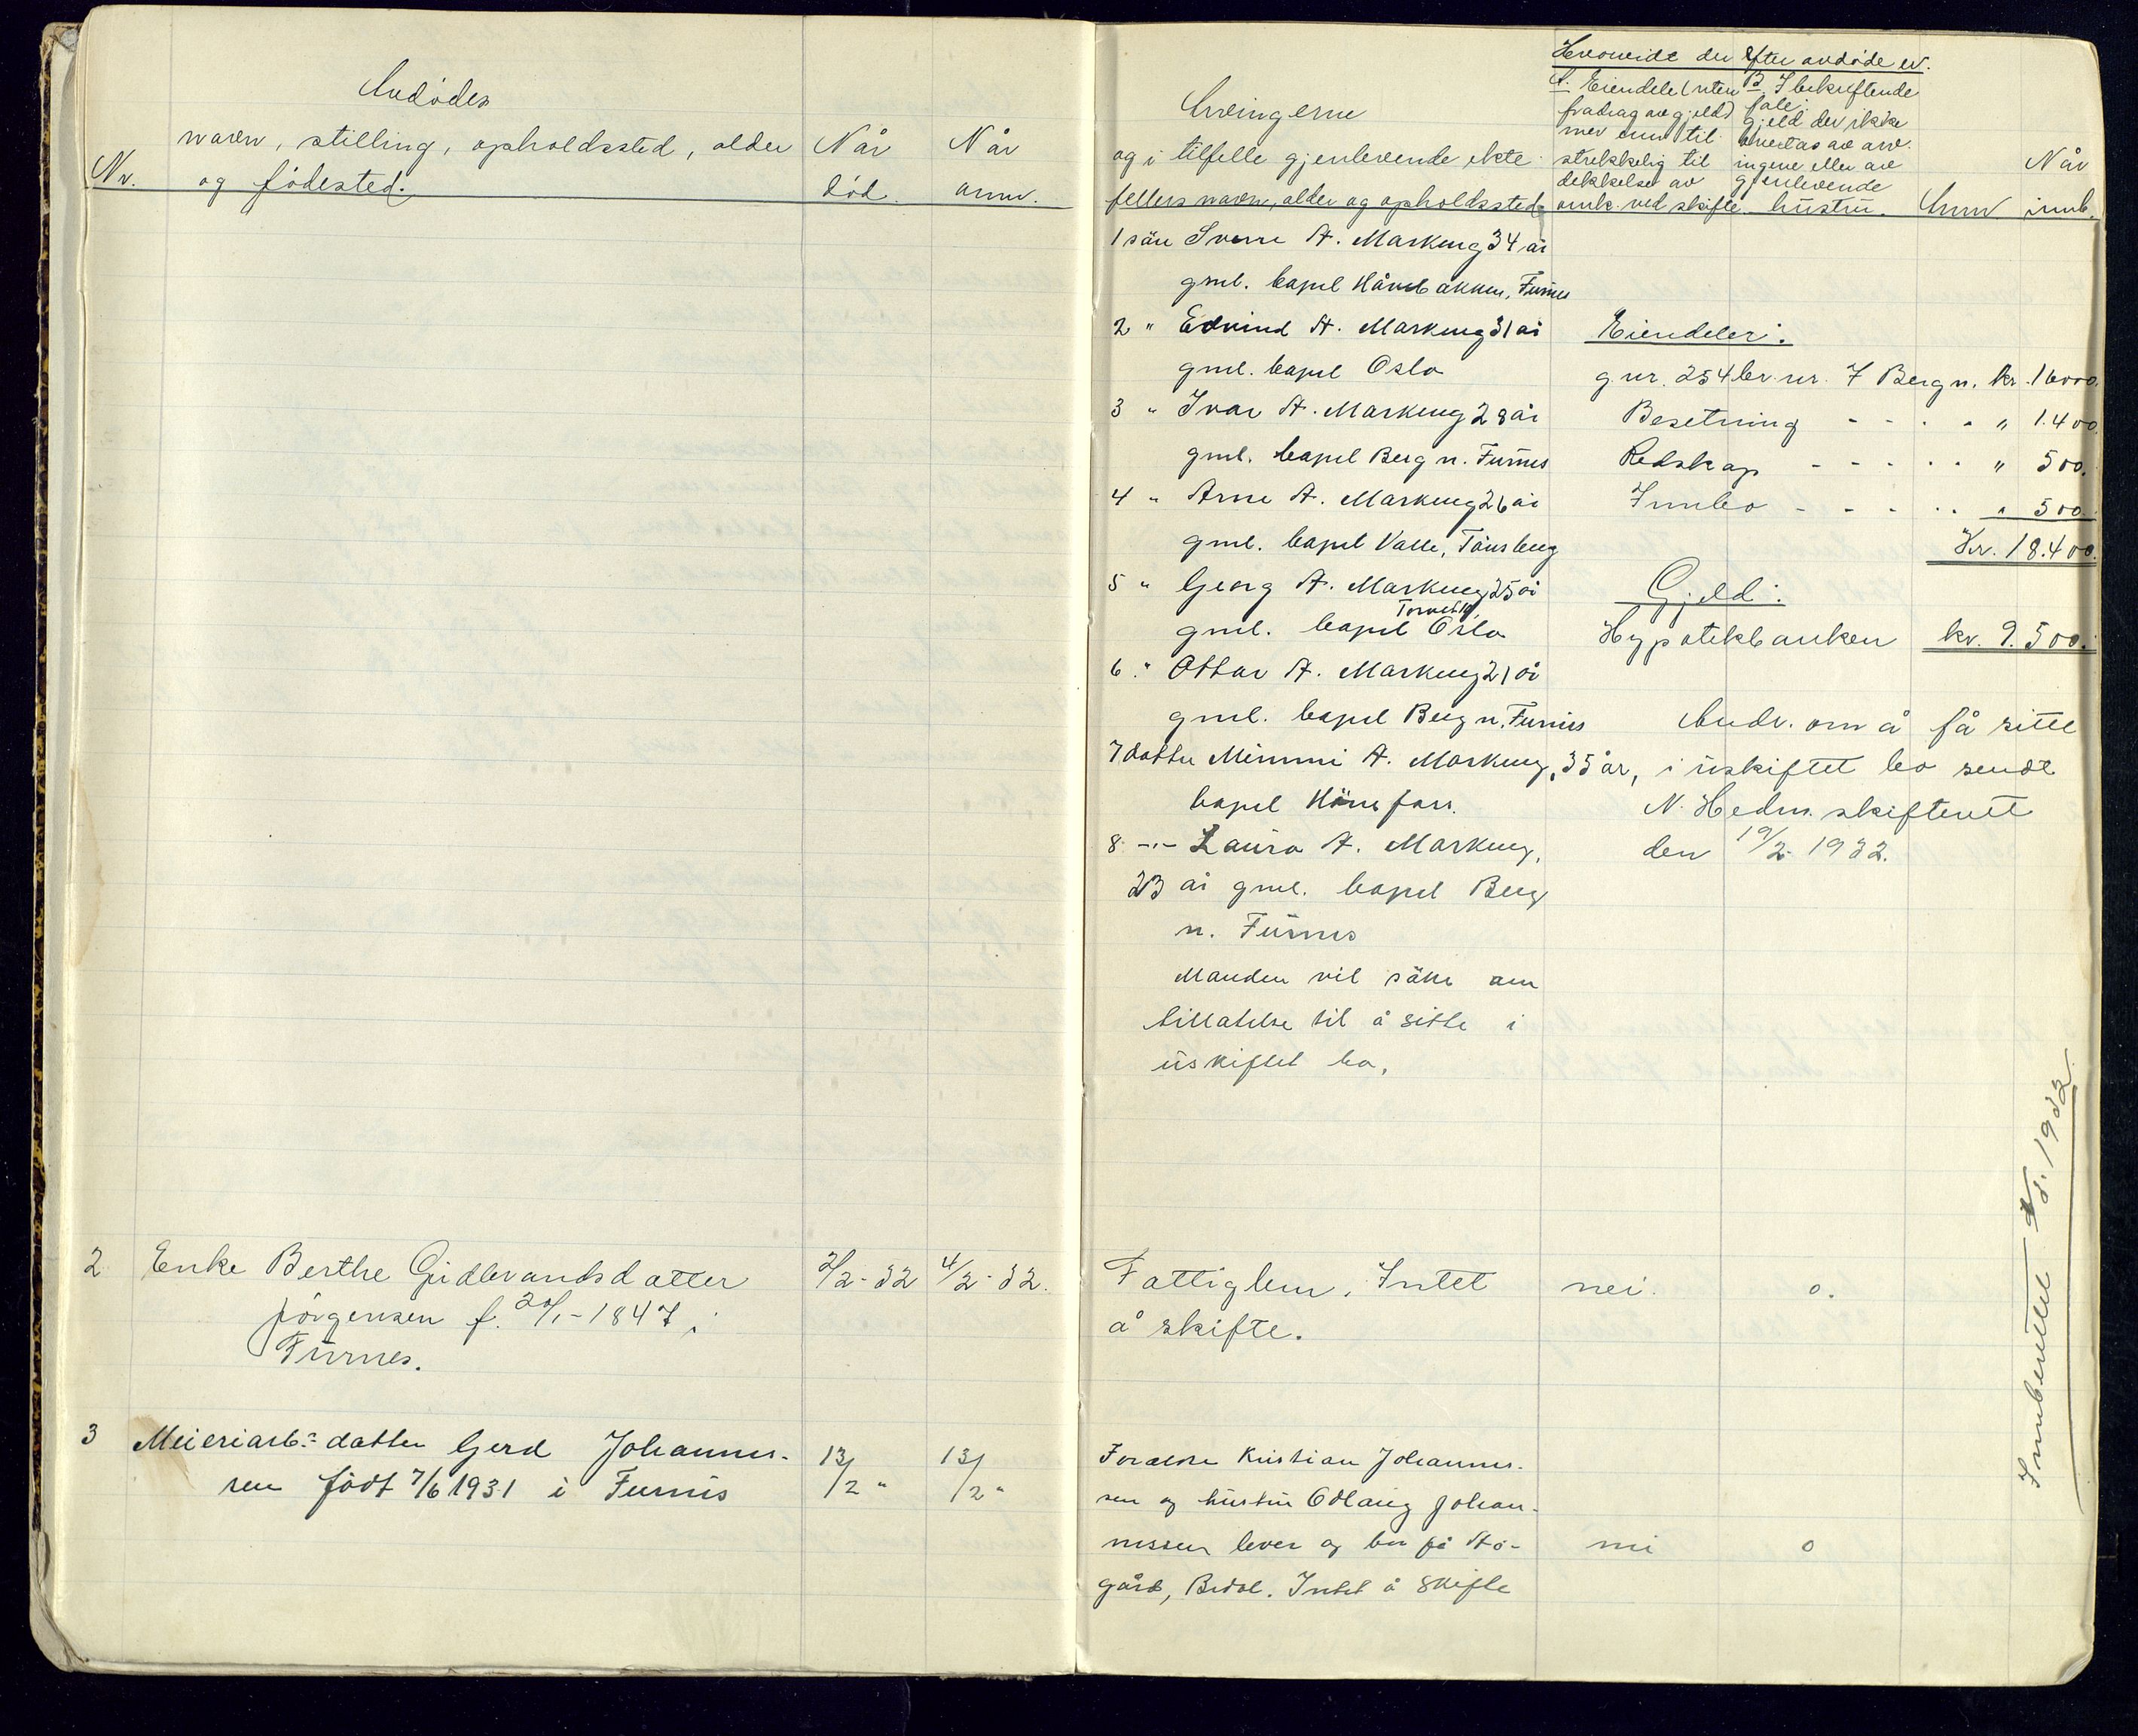 Avdödes
navn, stilling, opholdssted, alder
Nr. og födested.
Når
död.
Når
anm.
Arvingerne
og i tilfelle gjenlevende ekte-
fellers navn, alder og opholdssted
Hvorvidt der efter avdöde er.
A. Eiendele (uten
fradrag av gjeld)
mer enn til-
strekkelig til
dekkelse av
omk. ved skifte.
B. I bekreftende
fale:
Gjeld der ikke
overtas av arv-
ingene eller av
gjenlevende
hustru.
Anm
Når
innb.
1 sön Sverre A. Markeng 34 år
gml. bopel Håvebakken, Furnes
2 " Edvind A. Markeng 31 år
gml. bopel Oslo
3 " Ivar A. Markeng 28 år
gml. bopel Berg n. Furnes
4 " Arne A. Markeng 26 år
gml. bopel Valle, Tönsberg
5 " Georg A. Markeng 25 år
gml. bopel Oslo
6 " Ottar A. Markeng 21 år
gml. bopel Berg n. Furnes
7 datter Mimmi A. Markeng, 35 år,
bopel Hönefoss.
8 -"- Laura A. Markeng,
23 år gml. bopel Berg
n. Furnes
Manden vil söke om
tillatelse til å sitte i
uskiftet bo,
Eiendeler:
g.nr. 254 br.nr. 7 Berg n. kr. 16000.
Besetning - - - - " 1.400.
Redskap - - - - - " 500.
Innbo - - - - - " 500.
Kr. 18.400.
Gjeld:
Hypotekbanken kr. 9.500.
Andr. om å få sitte
i uskiftet bo sendt
N. Hedm. skifterett
den 19/2 1932.
2 Enke Berthe Gudbrandsdatter
Jörgensen f. 20/1-1847 i
Furnes.
2/2-32 4/2-32.
Fattiglem. Intet
å skifte.
nei. 0.
3 Meieriarb.s datter Gerd Johannes-
sen födt 7/6 1931 i Furnes
13/2 " 13/2 "
Foreldre Kristian Johannes-
sen og hustru Odlaug Johan-
nessen lever og bor på Sto-
gård, Brdal. Intet å skifte
nei 0
Innberettet 1932